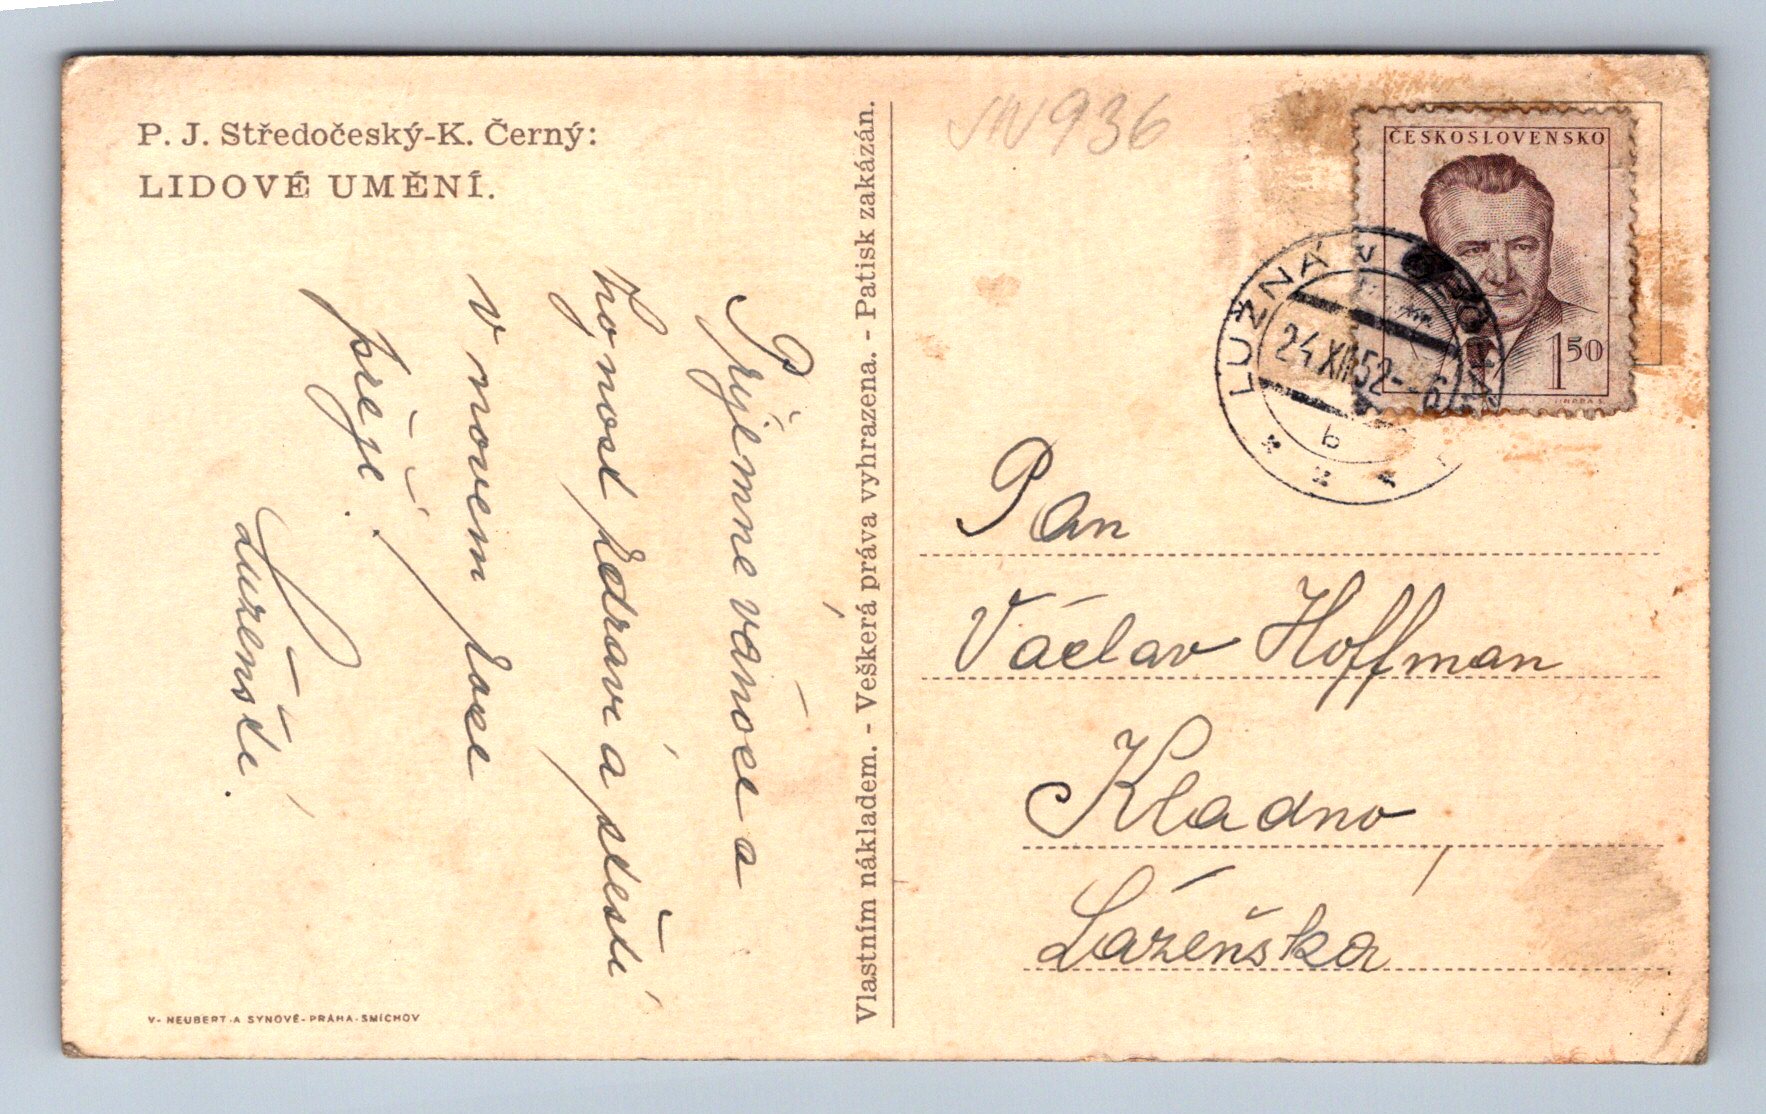 P. J. Středočeský-K. Černý:
LIDOVÉ UMĚNÍ.
Příjemne vánoce a
hojnost zdraví a štěstí
v novém roce
přeje.
Luženští.
V. NEUBERT A SYNOVÉ-PRAHA-SMÍCHOV
Vlastním nákladem. - Veškerá práva vyhrazena. - Patisk zakázán.
936
ČESKOSLOVENSKO
1 50
LUŽNÁ V
24.XII.52--6
b
Pan
Václav Hoffman
Kladno
Lázeňská